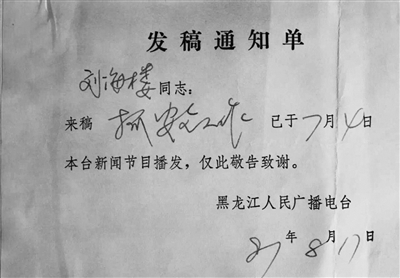 发稿通知单
刘海楼同志：
来稿 抓安全工作 已于7月4日
本台新闻节目播发，仅此敬告致谢。
黑龙江人民广播电台
87年8月17日